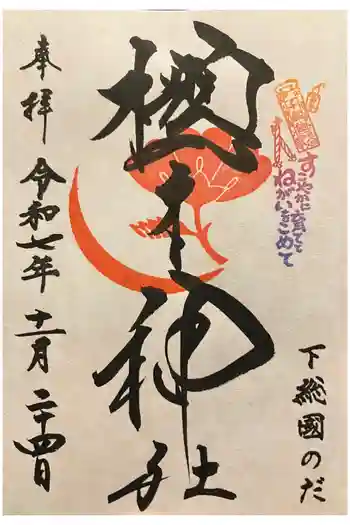 すこやかに育てと
ねがいをこめて
下総國のだ
櫻木神社
奉拝 令和七年 十一月 二十四日